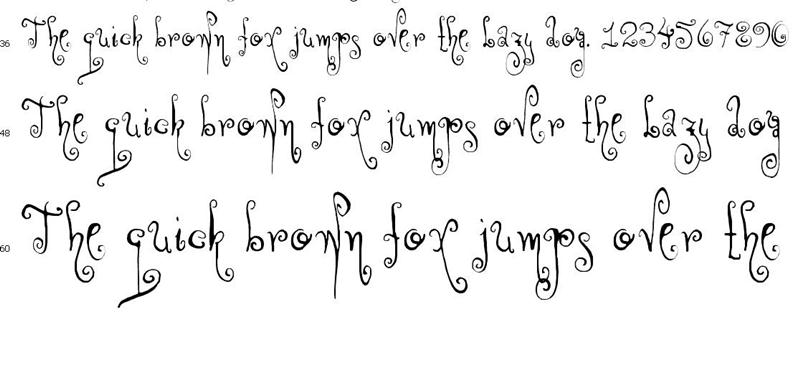 36 The quick brown fox jumps over the lazy dog. 1234567890
48 The quick brown fox jumps over the lazy dog
60 The quick brown fox jumps over the